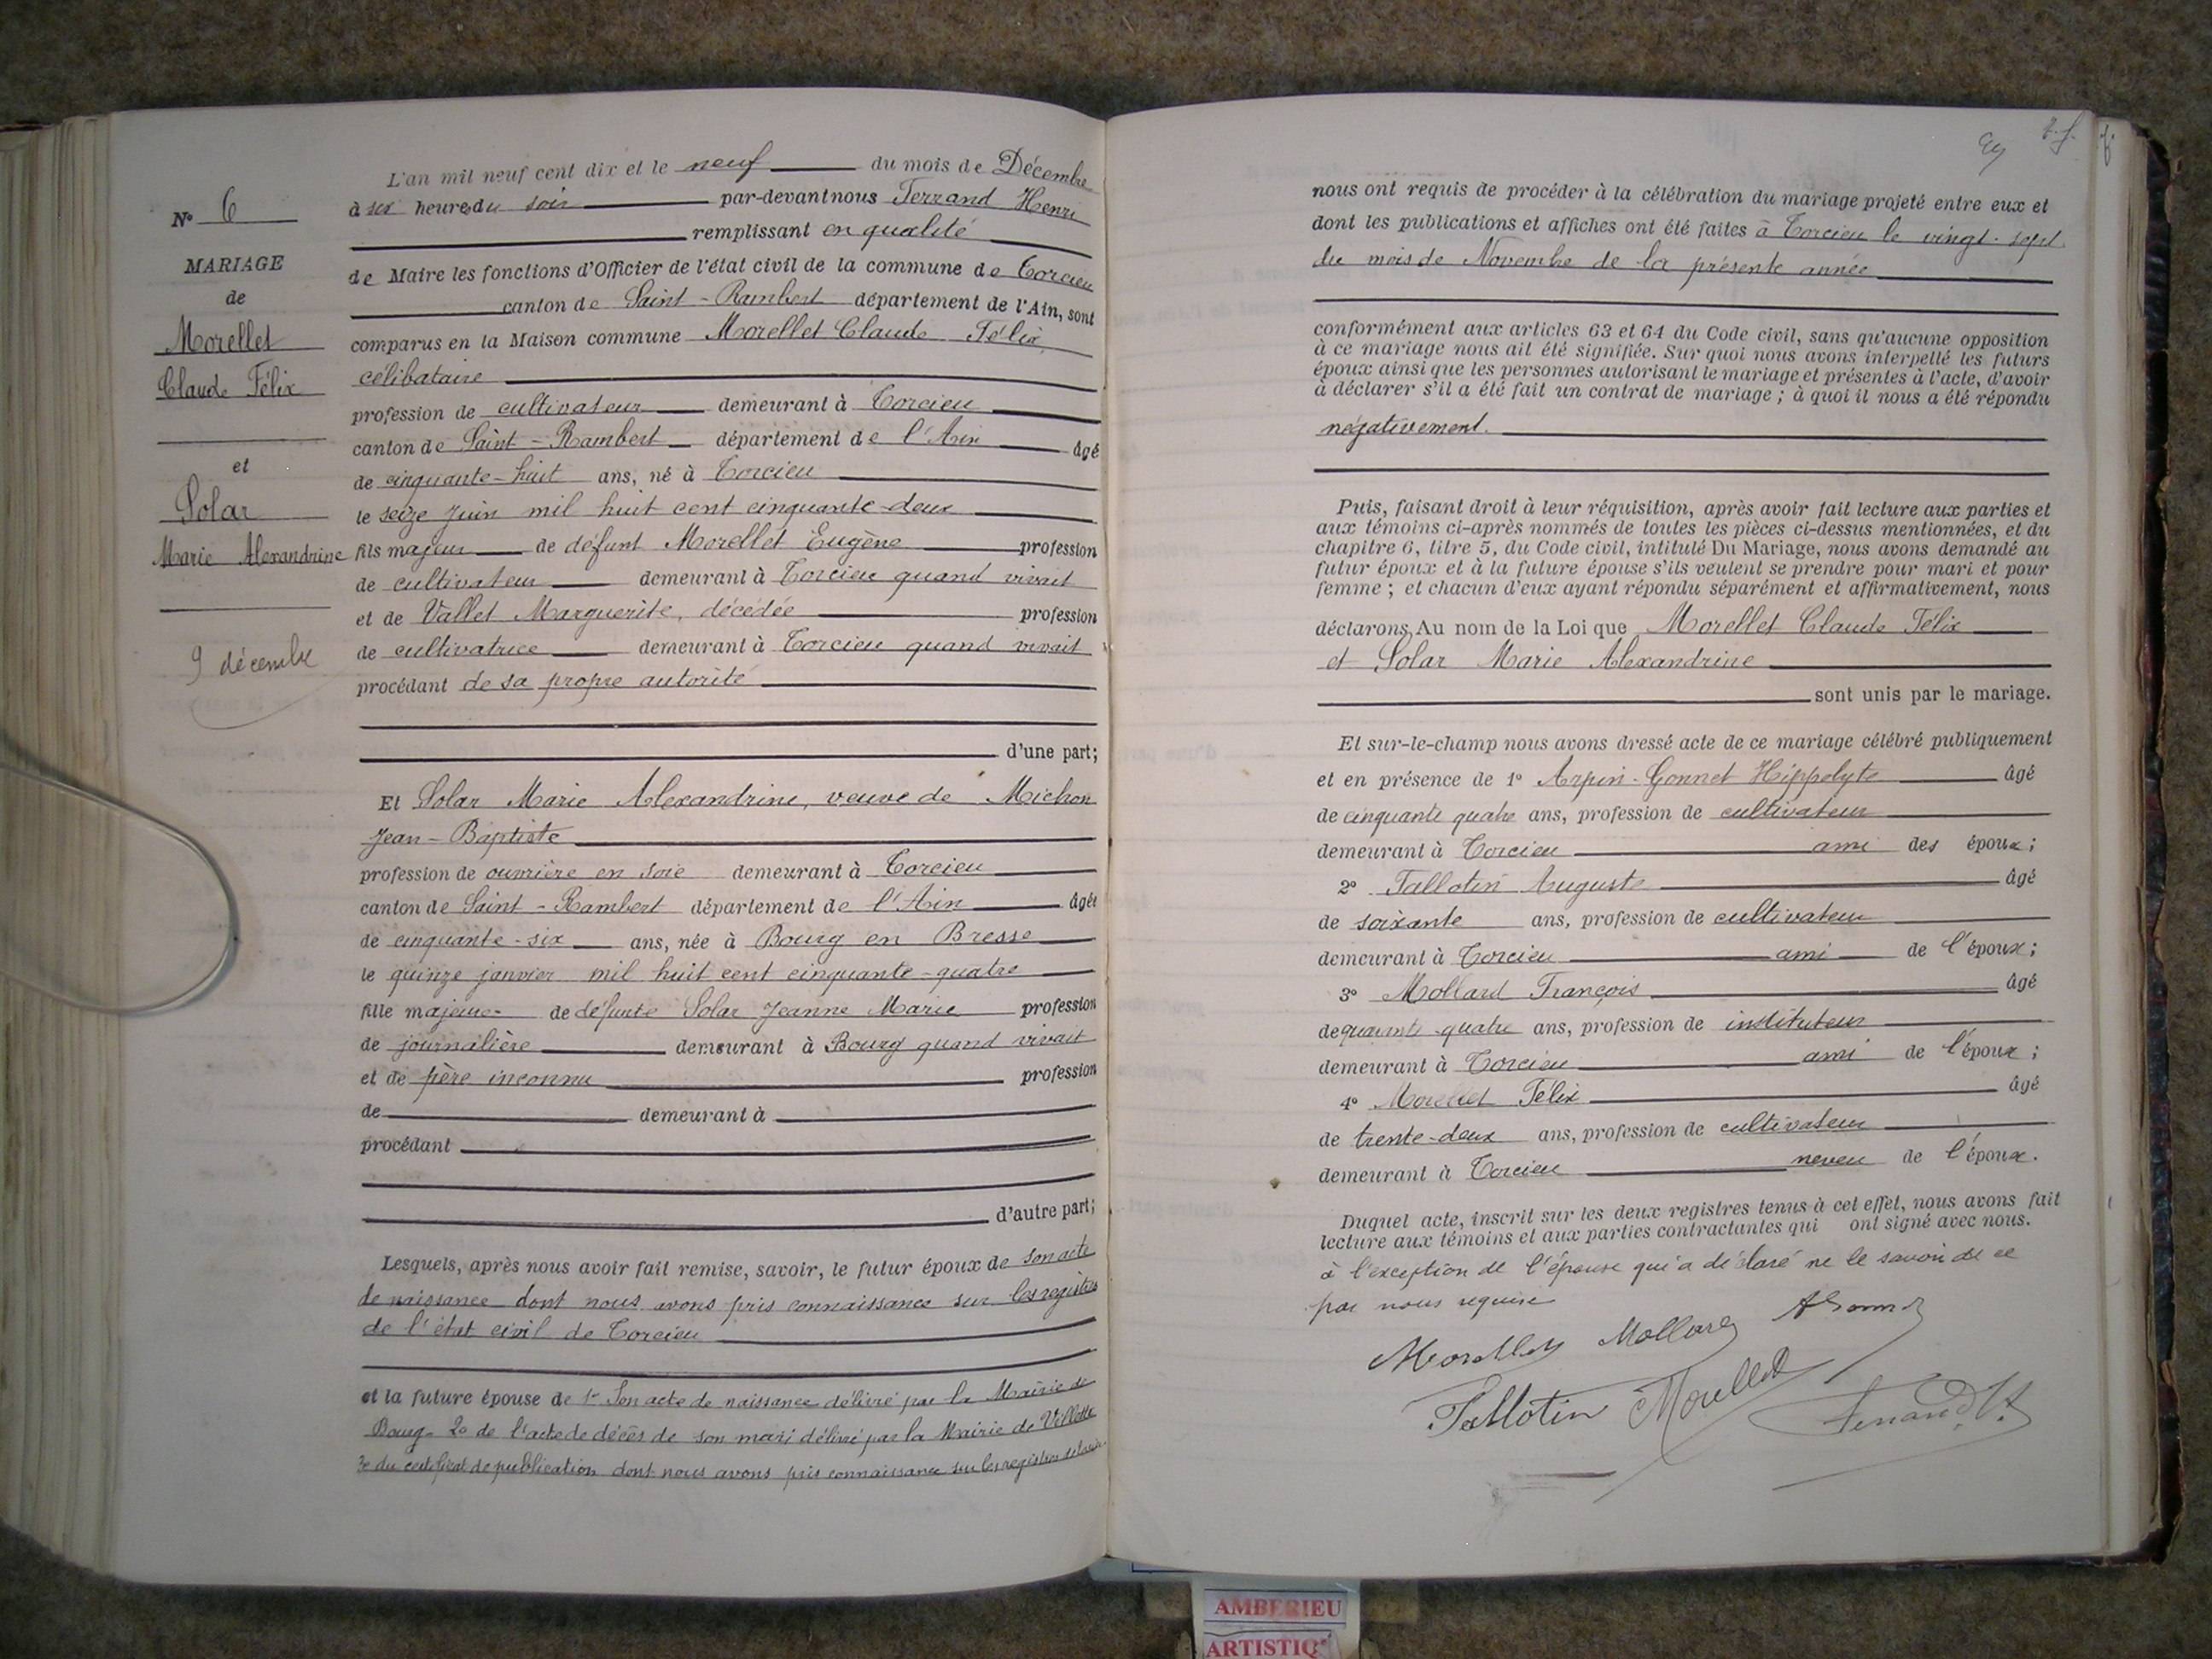 N° 6
MARIAGE
de
Morellet
Claude Félix
et
Solar
Marie Alexandrine
9 décembre
L'an mil neuf cent dix et le neuf du mois de Décembre
à six heures du soir par-devant nous Ferrand Henri
remplissant en qualité
de Maire les fonctions d'Officier de l'état civil de la commune de Torcieu
canton de Saint-Rambert département de l'Ain, sont
comparus en la Maison commune Morellet Claude Félix,
célibataire
profession de cultivateur demeurant à Torcieu
canton de Saint-Rambert département de l'Ain âgé
de cinquante-huit ans, né à Torcieu
le seize juin mil huit cent cinquante-deux
fils majeur de défunt Morellet Eugène profession
de cultivateur demeurant à Torcieu quand vivait
et de Vallet Marguerite, décédée profession
de cultivatrice demeurant à Torcieu quand vivait
procédant de sa propre autorité
d'une part;
Et Solar Marie Alexandrine, veuve de Michon
Jean-Baptiste
profession de ouvrière en soie demeurant à Torcieu
canton de Saint-Rambert département de l'Ain âgée
de cinquante-six ans, née à Bourg en Bresse
le quinze janvier mil huit cent cinquante-quatre
fille majeure de défunte Solar Jeanne Marie profession
de journalière demeurant à Bourg quand vivait
et de père inconnu profession
de demeurant à
procédant
d'autre part;
Lesquels, après nous avoir fait remise, savoir, le futur époux de son acte
de naissance dont nous avons pris connaissance sur les registres
de l'état civil de Torcieu
et la future épouse de 1° Son acte de naissance délivré par la Mairie de
Bourg. 2° de l'acte de décès de son mari délivré par la Mairie de Villette
3° du certificat de publication dont nous avons pris connaissance sur les registres
nous ont requis de procéder à la célébration du mariage projeté entre eux et
dont les publications et affiches ont été faites à Torcieu le vingt-sept
du mois de Novembre de la présente année
conformément aux articles 63 et 64 du Code civil, sans qu'aucune opposition
à ce mariage nous ait été signifiée. Sur quoi nous avons interpellé les futurs
époux ainsi que les personnes autorisant le mariage et présentes à l'acte, d'avoir
à déclarer s'il a été fait un contrat de mariage ; à quoi il nous a été répondu
négativement.
Puis, faisant droit à leur réquisition, après avoir fait lecture aux parties et
aux témoins ci-après nommés de toutes les pièces ci-dessus mentionnées, et du
chapitre 6, titre 5, du Code civil, intitulé Du Mariage, nous avons demandé au
futur époux et à la future épouse s'ils veulent se prendre pour mari et pour
femme ; et chacun d'eux ayant répondu séparément et affirmativement, nous
déclarons, Au nom de la Loi que Morellet Claude Félix
et Solar Marie Alexandrine
sont unis par le mariage.
Et sur-le-champ nous avons dressé acte de ce mariage célébré publiquement
et en présence de 1° Arpin-Gonnet Hippolyte âgé
de cinquante quatre ans, profession de cultivateur
demeurant à Torcieu ami des époux ;
2° Tallotin Auguste âgé
de soixante ans, profession de cultivateur
demeurant à Torcieu ami de l'époux ;
3° Mollard François âgé
de quarante-quatre ans, profession de instituteur
demeurant à Torcieu ami de l'époux ;
4° Morellet Félix âgé
de trente-deux ans, profession de cultivateur
demeurant à Torcieu neveu de l'époux.
Duquel acte, inscrit sur les deux registres tenus à cet effet, nous avons fait
lecture aux témoins et aux parties contractantes qui ont signé avec nous.
à l'exception de l'épouse qui a déclaré ne le savoir de ce
par nous requise
Morellet Mollard
Tallotin Morellet Ferrand H.
AMBERIEU
ARTISTIQ